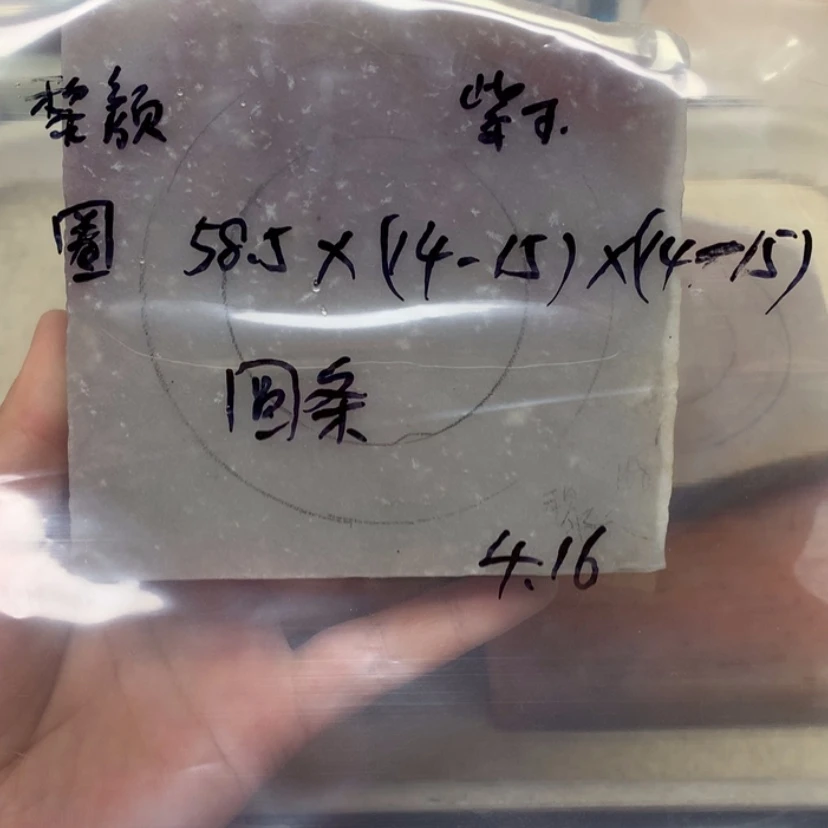 黎颜 紫玉.
圈 58.5×(14-15)×(14-15)
圆条
4.16